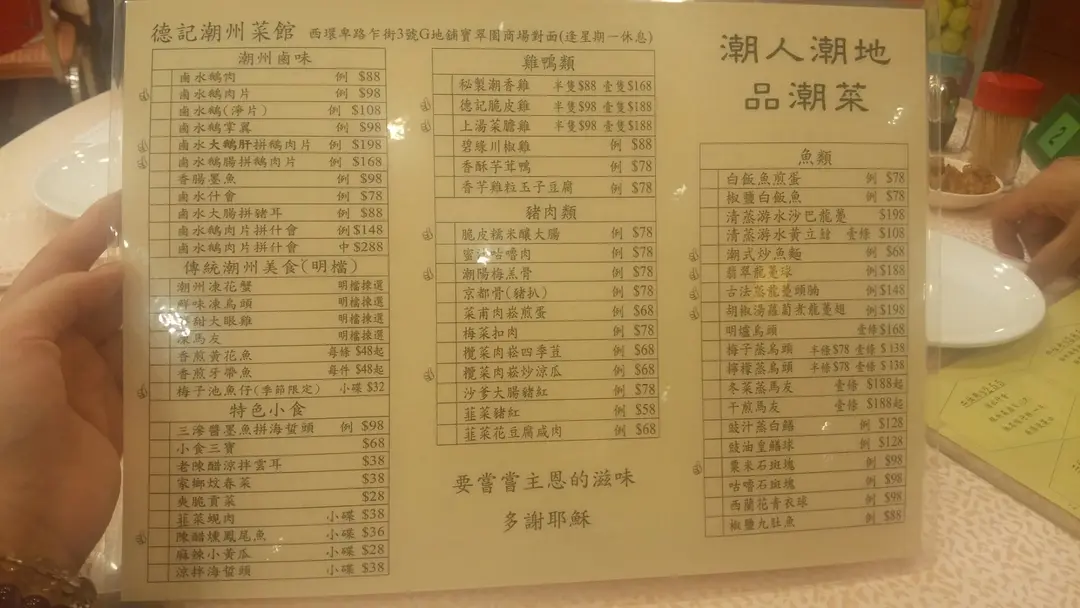 德記潮州菜館 西環卑路乍街3號G地舖寶翠園商場對面(逢星期一休息)
潮州鹵味
鹵水鵝肉 例 $88
鹵水鵝肉片 例 $98
鹵水鵝(淨片) 例 $108
鹵水鵝掌翼 例 $98
鹵水大鵝肝拼鵝肉片 例 $198
鹵水鵝腸拼鵝肉片 例 $168
香腸墨魚 例 $98
鹵水什會 例 $78
鹵水大腸拼豬耳 例 $88
鹵水鵝肉片拼什會 例 $148
鹵水鵝肉片拼什會 中 $288
傳統潮州美食(明檔)
潮州凍花蟹 明檔揀選
鮮味凍烏頭 明檔揀選
大眼雞 明檔揀選
馬友 明檔揀選
香煎黃花魚 每條 $48起
香煎牙帶魚 每件 $48起
梅子池魚仔(季節限定) 小碟 $32
特色小食
三滲醬墨魚拼海蜇頭 例 $98
小食三寶 $68
老陳醋涼拌雲耳 $38
家鄉蚊春菜 $38
爽脆貢菜 $28
韮菜蜆肉 小碟 $38
陳醋燻鳳尾魚 小碟 $36
麻辣小黃瓜 小碟 $28
涼拌海蜇頭 小碟 $38
雞鴨類
秘製潮香雞 半隻$88 壹隻$168
德記脆皮雞 半隻$98 壹隻$188
上湯菜膽雞 半隻$98 壹隻$188
碧綠川椒雞 例 $88
香酥芋茸鴨 例 $78
香芋雞粒玉子豆腐 例 $78
豬肉類
脆皮糯米釀大腸 例 $78
咕嚕肉 例 $78
潮陽梅羔骨 例 $78
京都骨(豬扒) 例 $78
菜甫肉崧煎蛋 例 $68
梅菜扣肉 例 $78
欖菜肉崧四季荳 例 $68
欖菜肉崧炒涼瓜 例 $68
沙爹大腸豬紅 例 $78
韮菜豬紅 例 $58
韮菜花豆腐咸肉 例 $68
要嘗嘗主恩的滋味
多謝耶穌
潮人潮地
品潮菜
魚類
白飯魚煎蛋 例 $78
椒鹽白飯魚 例 $78
清蒸游水沙巴龍躉 $198
清蒸游水黃立鯧 壹條 $108
潮式炒魚麵 例 $68
翡翠龍躉球 例$188
古法蒸龍躉頭腩 例$148
胡椒湯蘿蔔煮龍躉翅 例 $198
明爐烏頭 壹條$168
梅子蒸烏頭 半條$78 壹條 $138
檸檬蒸烏頭 半條$78 壹條 $138
冬菜蒸馬友 壹條 $188起
干煎馬友 壹條 $188起
豉汁蒸白鱔 例 $128
豉油皇鱔球 例 $128
粟米石斑塊 例 $98
咕嚕石斑塊 例 $98
西蘭花青衣球 例 $98
椒鹽九肚魚 例 $88
2